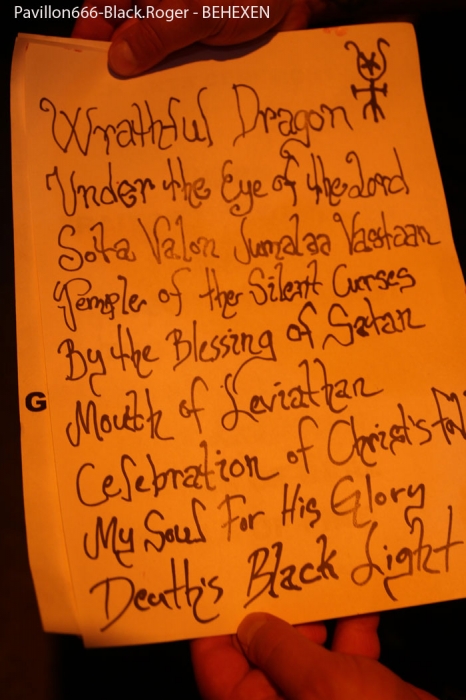 Pavillon666-Black.Roger - BEHEXEN
Wrathful Dragon
Under the Eye of the Lord
Sota Valon Jumalaa Vastaan
Temple of the Silent Curses
By the Blessing of Satan
G
Mouth of Leviathan
Celebration of Christ's
My Soul For His Glory
Death's Black Light